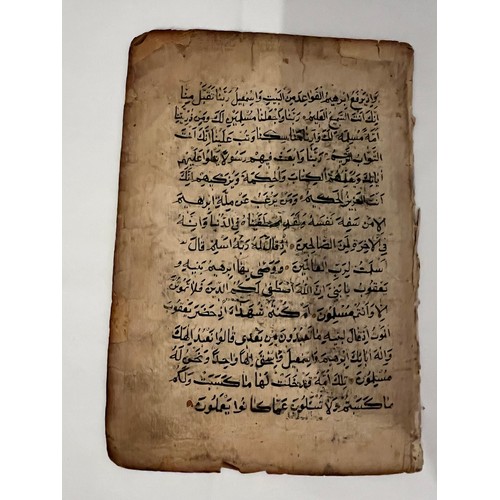 واذ يرفع ابرهيم القواعد من البيت واسمعيل ربنا تقبل منا
انك انت السميع العليم ربنا واجعلنا مسلمين لك ومن ذريتنا
امة مسلمة لك وارنا مناسكنا وتب علينا انك انت
التواب الرحيم ربنا وابعث فيهم رسولا يتلوا عليهم
اياتك ويعلمهم الكتاب والحكمة ويزكيهم انك
انت العزيز الحكيم ومن يرغب عن ملة ابرهيم
الا من سفه نفسه ولقد اصطفيناه في الدنيا وانه
في الاخرة لمن الصالحين اذ قال له ربه اسلم قال
اسلمت لرب العالمين ووصى بها ابرهيم بنيه و
يعقوب يا بني ان الله اصطفى لكم الدين فلا تموتن
الا وانتم مسلمون ام كنتم شهداء اذ حضر يعقوب
الموت اذ قال لبنيه ما تعبدون من بعدي قالوا نعبد الهك
واله ابائك ابرهيم واسمعيل واسحق الها واحدا ونحن له
مسلمون تلك امة قد خلت لها ما كسبت ولكم
ما كسبتم ولا تسئلون عما كانوا يعملون